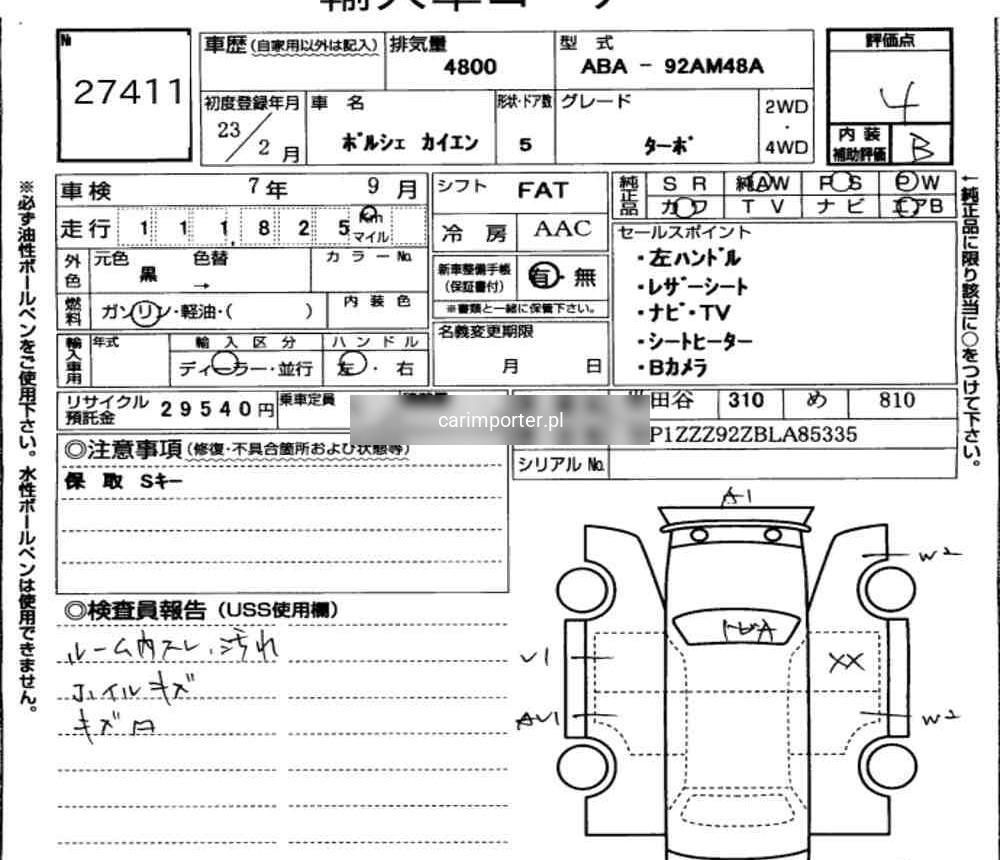 №
27411
車歴(自家用以外は記入)
排気量
4800
型 式
ABA - 92AM48A
評価点
4
初度登録年月
23/2月
車 名
ポルシェ カイエン
形状・ドア数
5
グレード
ターボ
2WD
・
4WD
内装
補助評価
B
車検 7年 9月
シフト FAT
純正品
SR 純AW PS PW
カワ TV ナビ エアB
走行 111,825 Km
マイル
冷 房 AAC
セールスポイント
・左ハンドル
・レザーシート
・ナビ・TV
・シートヒーター
・Bカメラ
外色
元色 黒
色替
→
カラーNo.
新車整備手帳
(保証書付)
有・無
※書類と一緒に保管下さい。
燃料
ガソリン・軽油・( )
内装色
名義変更期限
月 日
輸入車用
年式
輸入区分
ディーラー・並行
ハンドル
左・右
リサイクル
預託金
29540円
乗車定員
carimporter.pl
田谷 310 め 810
P1ZZZ92ZBLA85335
シリアルNo.
◎注意事項(修復・不具合箇所および状態等)
保 取 Sキー
◎検査員報告(USS使用欄)
ルーム内スレ、汚れ
ホイルキズ
A1
W2
トビA
U1
XX
AU1
W2
※必ず油性ボールペンをご使用下さい。水性ボールペンは使用できません。
↑純正品に限り該当に○をつけて下さい。